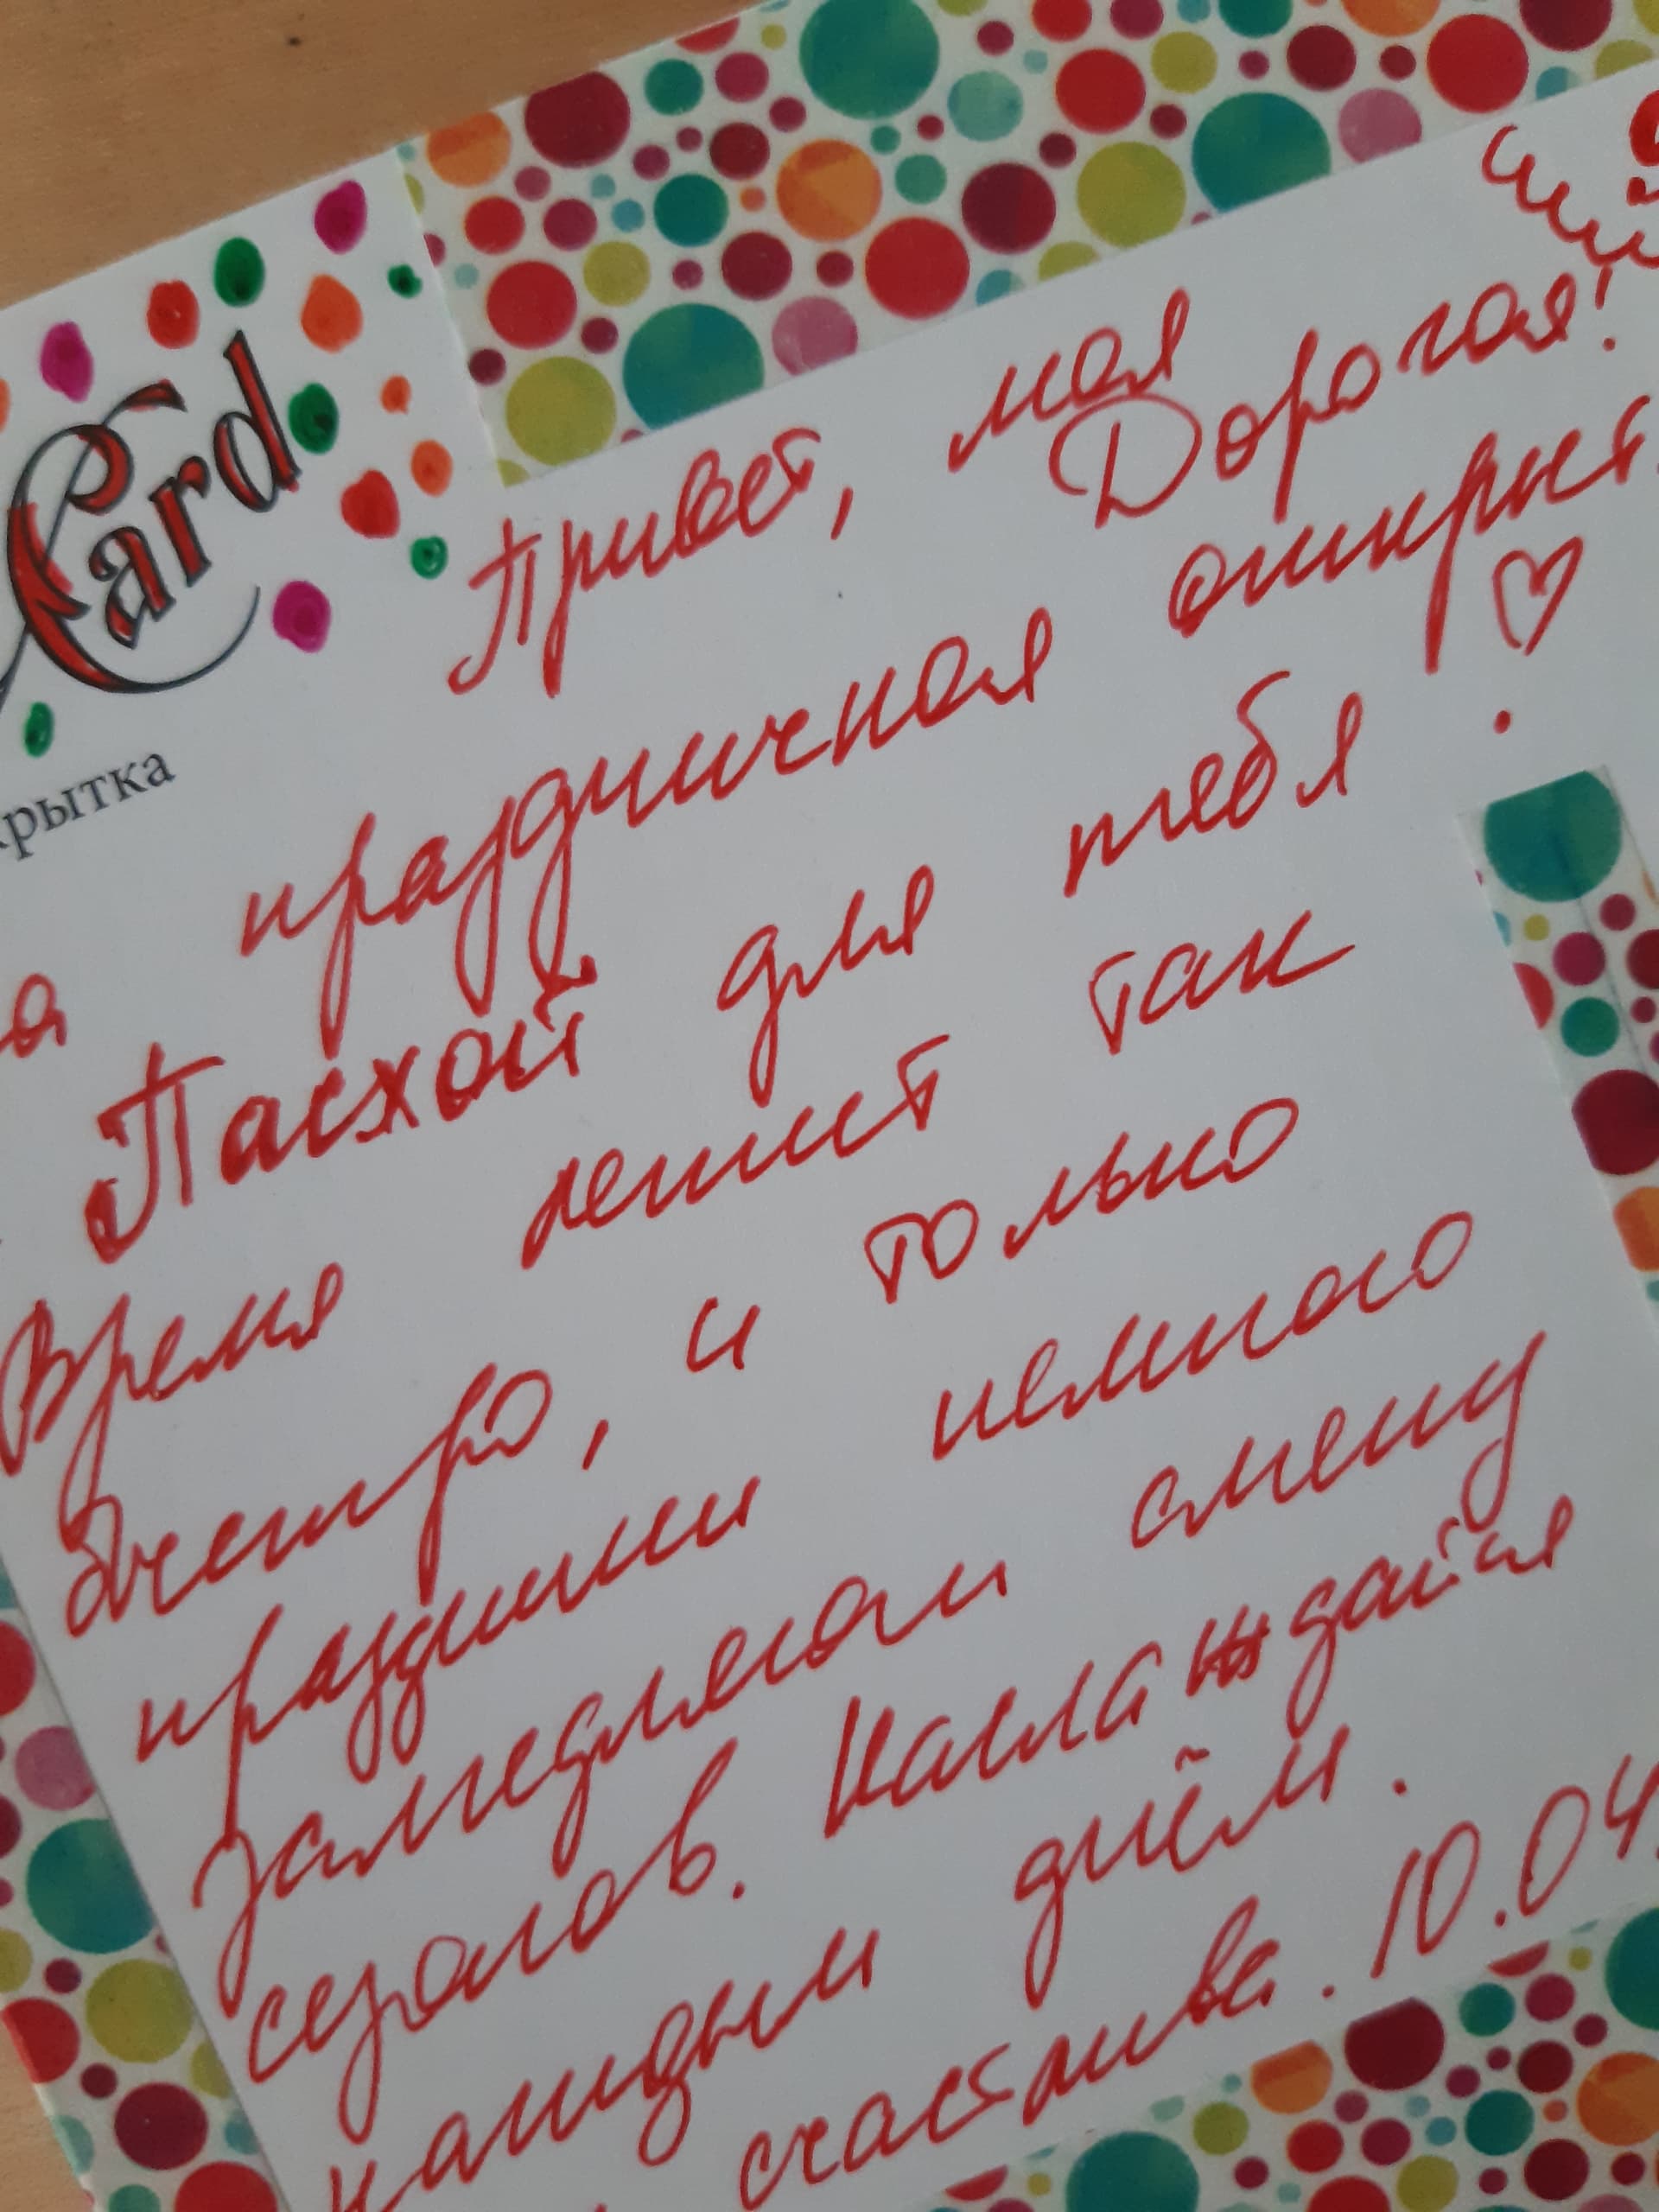 Card
крытка
Привет, моя
Дорогая!
а праздничная открыт
Пасхой для тебя.
Время летит так
быстро, и только
праздники немного
замедляют смену
сезонов. Наслаждайся
каждым днём.
счастлива. 10.04